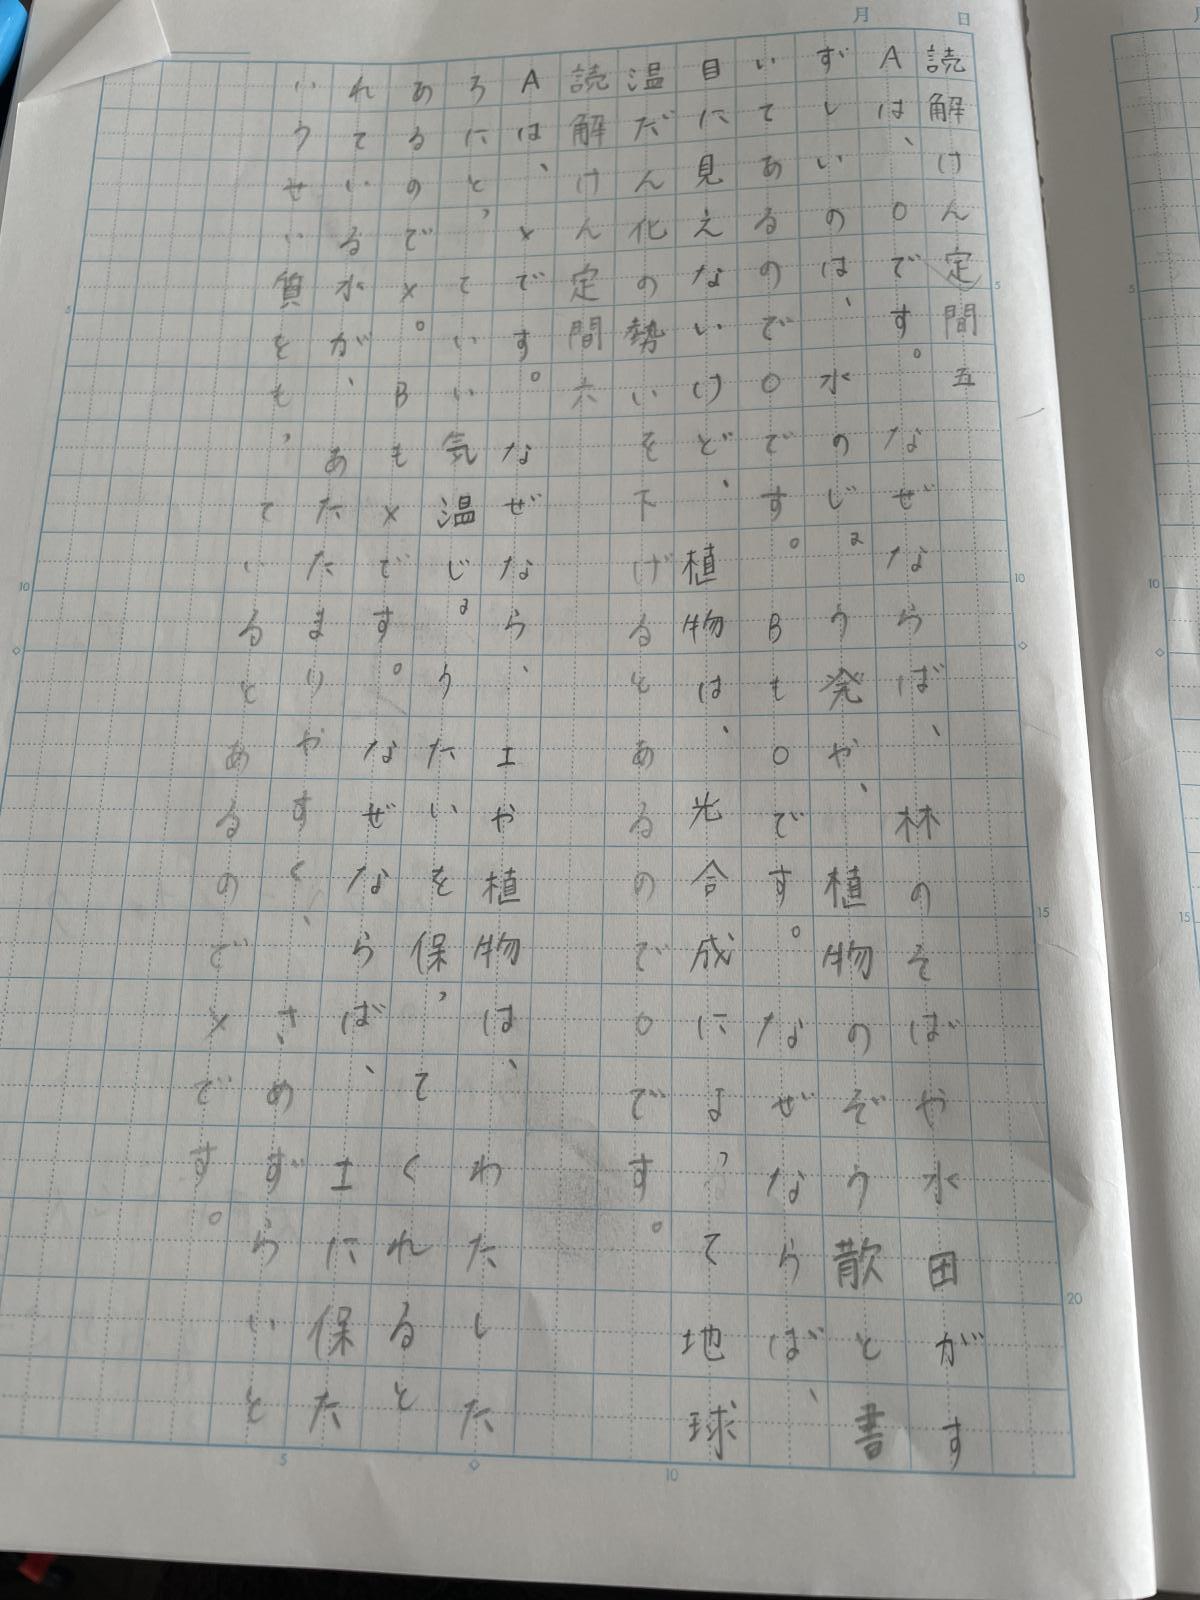 月 日
読解けん定間五
Aは、○です。なぜならば、林のそばや水田がす
ずしいのは、水のじょう発や、植物のぞう散と書
いてあるので○です。Bも○です。なぜならば、
目に見えないけど、植物は、光合成によって地球
温だん化の勢いを下げるとあるので○です。
読解けん定間六
Aは、×です。なぜなら、土や植物は、わたした
ちにとっていい気温じょうたいを保ってくれると
あるので×。Bも×です。なぜならば、土に保た
れている水が、あたたまりやすく、さめずらいと
いうせい質をもっているとあるので×です。
5
10
15
20
5
10
5
10
5
10
15